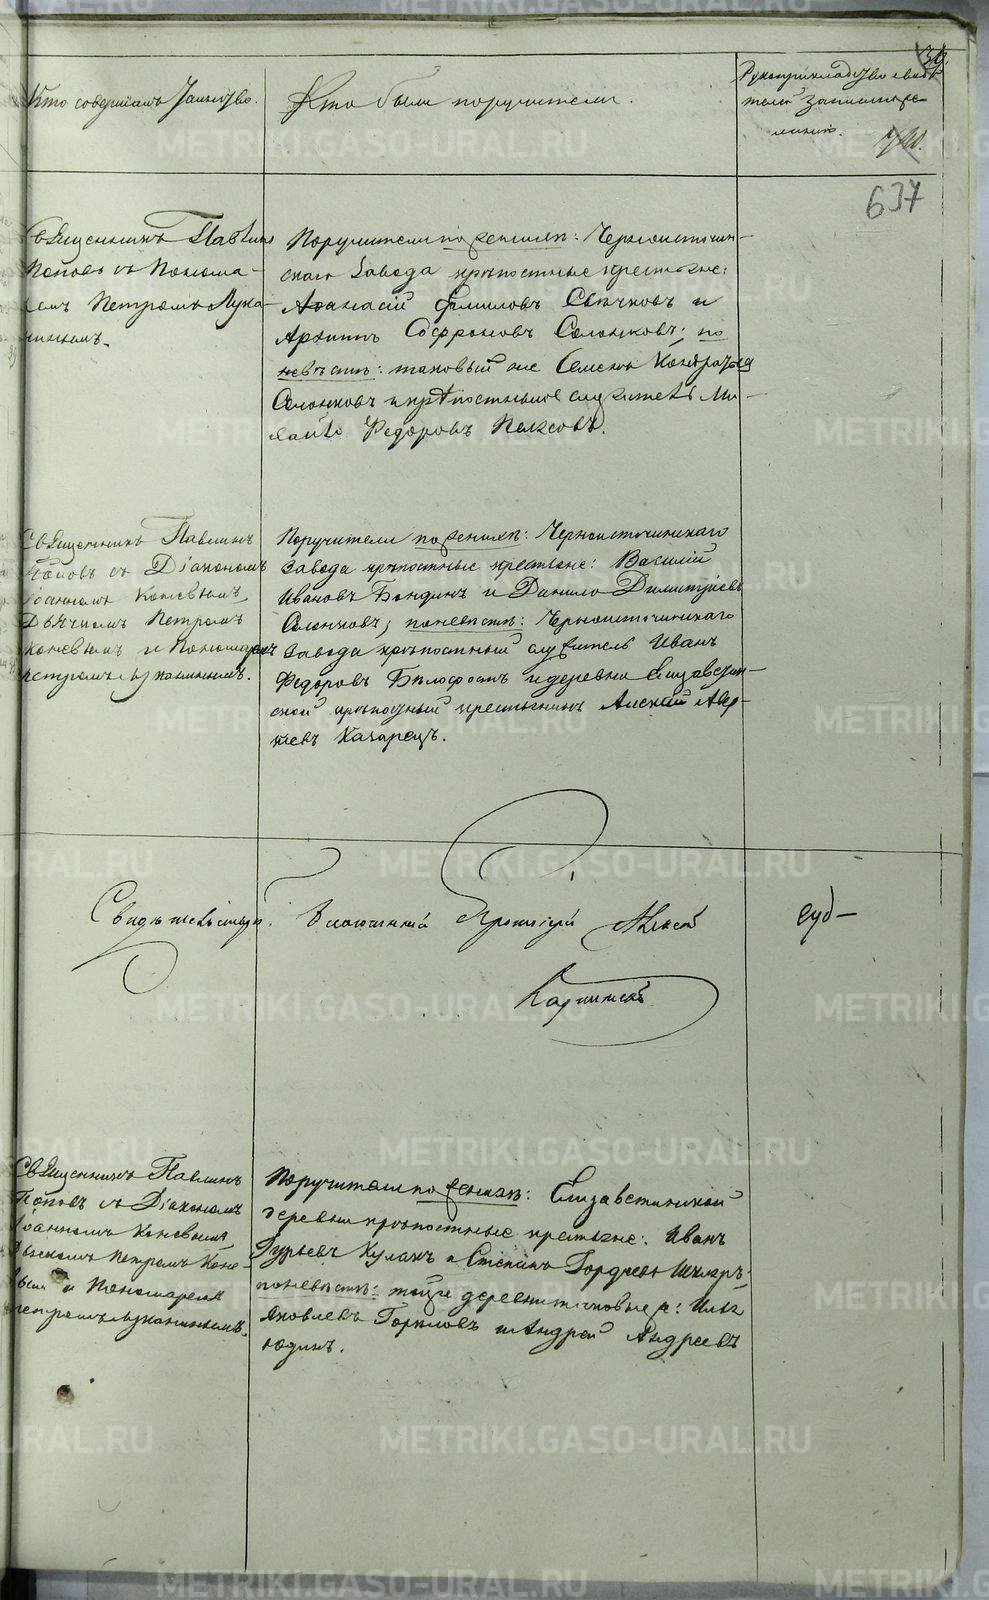 36.
Кто совершалъ Таинство.
Кто были поручители.
Рукоприкладство свидѣ-
телей записи по же-
ланію.
637
Священникъ Павлинъ
Поповъ съ Понома-
ремъ Петромъ Лука-
нинымъ.
Поручители по женихѣ: Черноисточин-
скаго завода крѣпостные крестьяне:
Афанасій Филиповъ Свѣчковъ и
Архипъ Софроновъ Солонковъ; по
невѣстѣ: таковый же Семенъ Кондратьевъ
Солонковъ и крѣпостный служитель Ми-
хайло Федоровъ
Священникъ Павлинъ
Поповъ съ Діакономъ
Іоанномъ Коневымъ,
Дьячкомъ Петромъ
Коневымъ и Пономаремъ
Петромъ Луканинымъ.
Поручители по женихѣ: Черноисточинскаго
завода крѣпостные крестьяне: Василій
Ивановъ Бондинъ и Данило Димитріевъ
Солонковъ; по невѣстѣ: Черноисточинскаго
завода крѣпостный служитель Иванъ
Федоровъ и деревни Елизаветин-
ской крѣпостный крестьянинъ Алексѣй Авер-
Качарецъ.
Свидѣтельствую. Благочинный Протоіерей Алексѣй
Карпинскій
Священникъ Павлинъ
Поповъ съ Діакономъ
Іоанномъ Коневымъ
Дьячкомъ Петромъ Коне-
вымъ и Пономаремъ
Петромъ Луканинымъ.
Поручители по женихѣ: Елизаветинской
деревни крѣпостные крестьяне: Иванъ
Гурьевъ Кулакъ и Степанъ Гордѣевъ
по невѣстѣ: той же деревни таковые же: Илья
Яковлевъ Гориловъ и Андрей Андреевъ
Юдинъ.
METRIKI.GASO-URAL.RU